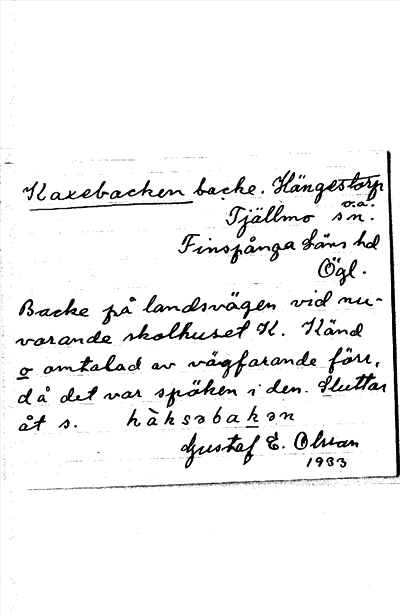 Kaxebacken backe. Hängestorp
o.a.
Tjällmo sn.
Finspånga läns hd
Ögl.
Backe på landsvägen vid nu-
varande skolhuset K. Känd
o omtalad av vägfarande förr,
då det var spöken i den. Sluttar
åt s. hàksəbakən
Gustaf E. Olsson
1933